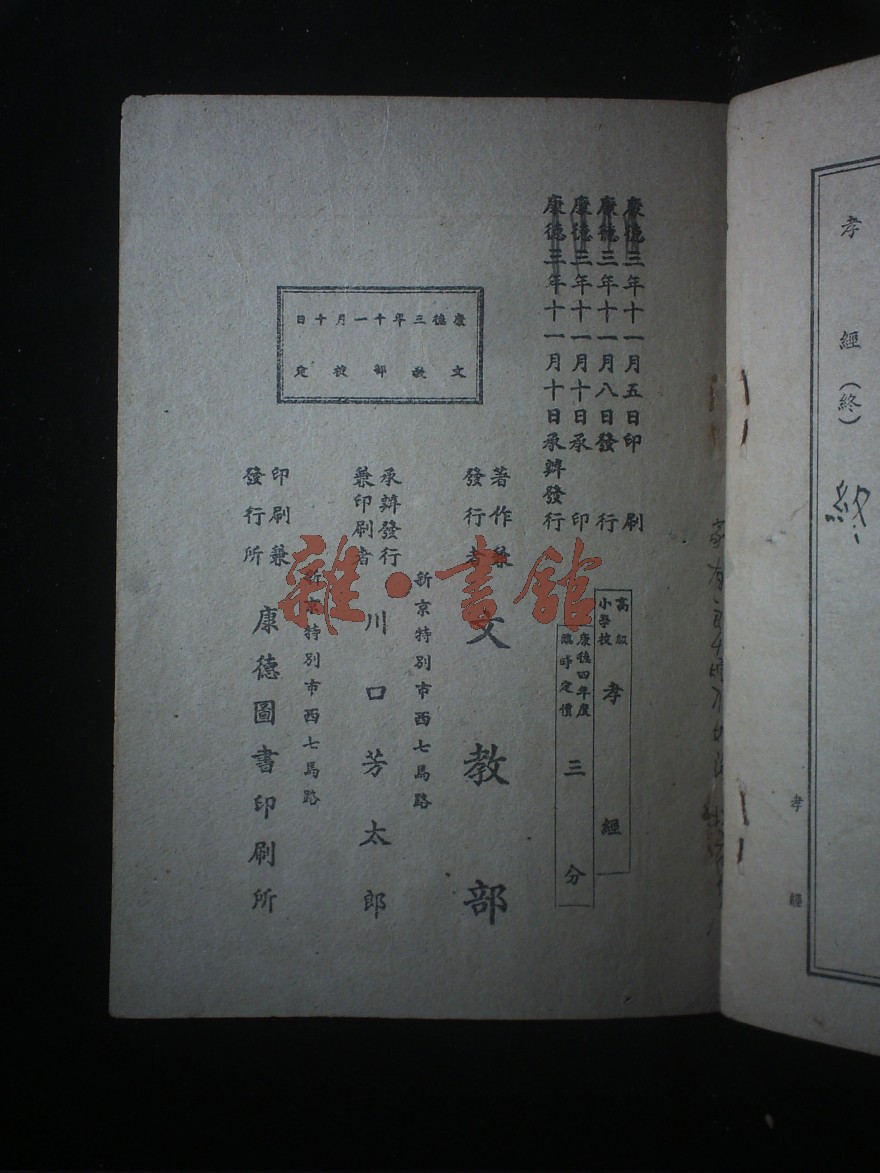 孝 經（終）
終
孝 經
康德三年十一月五日印刷
康德三年十一月八日發行
康德三年十一月十日承印
康德三年十一月十日承辦發行
高級小學校 孝經
康德四年度臨時定價 三分
康德三年十一月十日
文敎部檢定
著作兼發行者 文敎部
新京特別市西七馬路
承辦發行兼印刷者 川口芳太郎
新京特別市西七馬路
印刷兼發行所 康德圖書印刷所
雜·書館